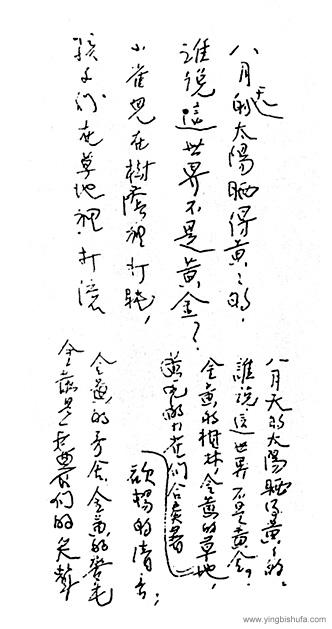 八月天的太陽晒得黃黃的,
誰說這世界不是黃金?
小雀兒在樹蔭裡打盹,
孩子們在草地裡打滾
八月天的太陽晒得黃黃的。
誰說這世界不是黃金?
金黃的樹林,金黃的草地,
小雀們合奏着
歡暢的清音;
金黃的茅舍,金黃的
金
們的笑聲
www.yingbishufa.com